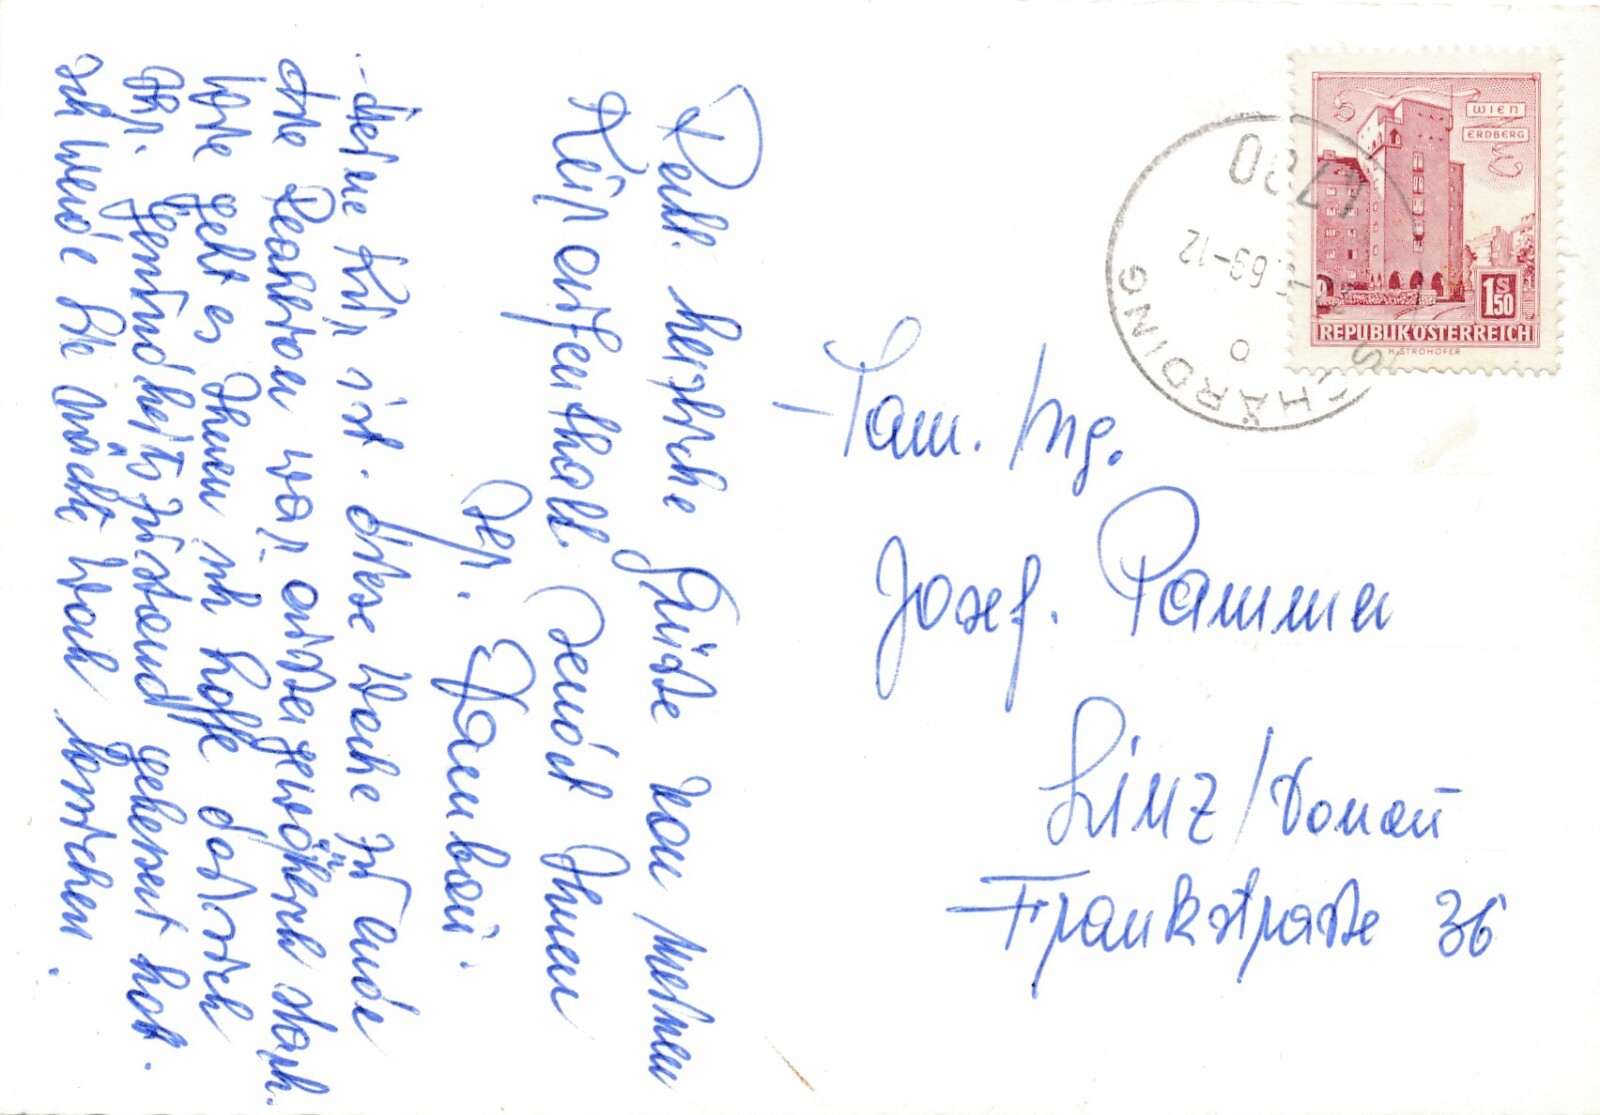 Recht herzliche Grüße von meinem
Kuraufenthalt sendet Ihnen
Kur ist. diese Woche zu Ende
die Reaktion war außergewöhnlich stark.
Wie geht es Ihnen ich hoffe daß sich
Ihr. gesundheitszustand gebessert hat.
ich werde Sie nächste Woche besuchen.
Fam. Ing.
Josef. Pammer
Linz/Donau
Frankstraße 36
WIEN
ERDBERG
1 S 50
REPUBLIK ÖSTERREICH
H. STROHOFER
4780
69-12
SCHÄRDING